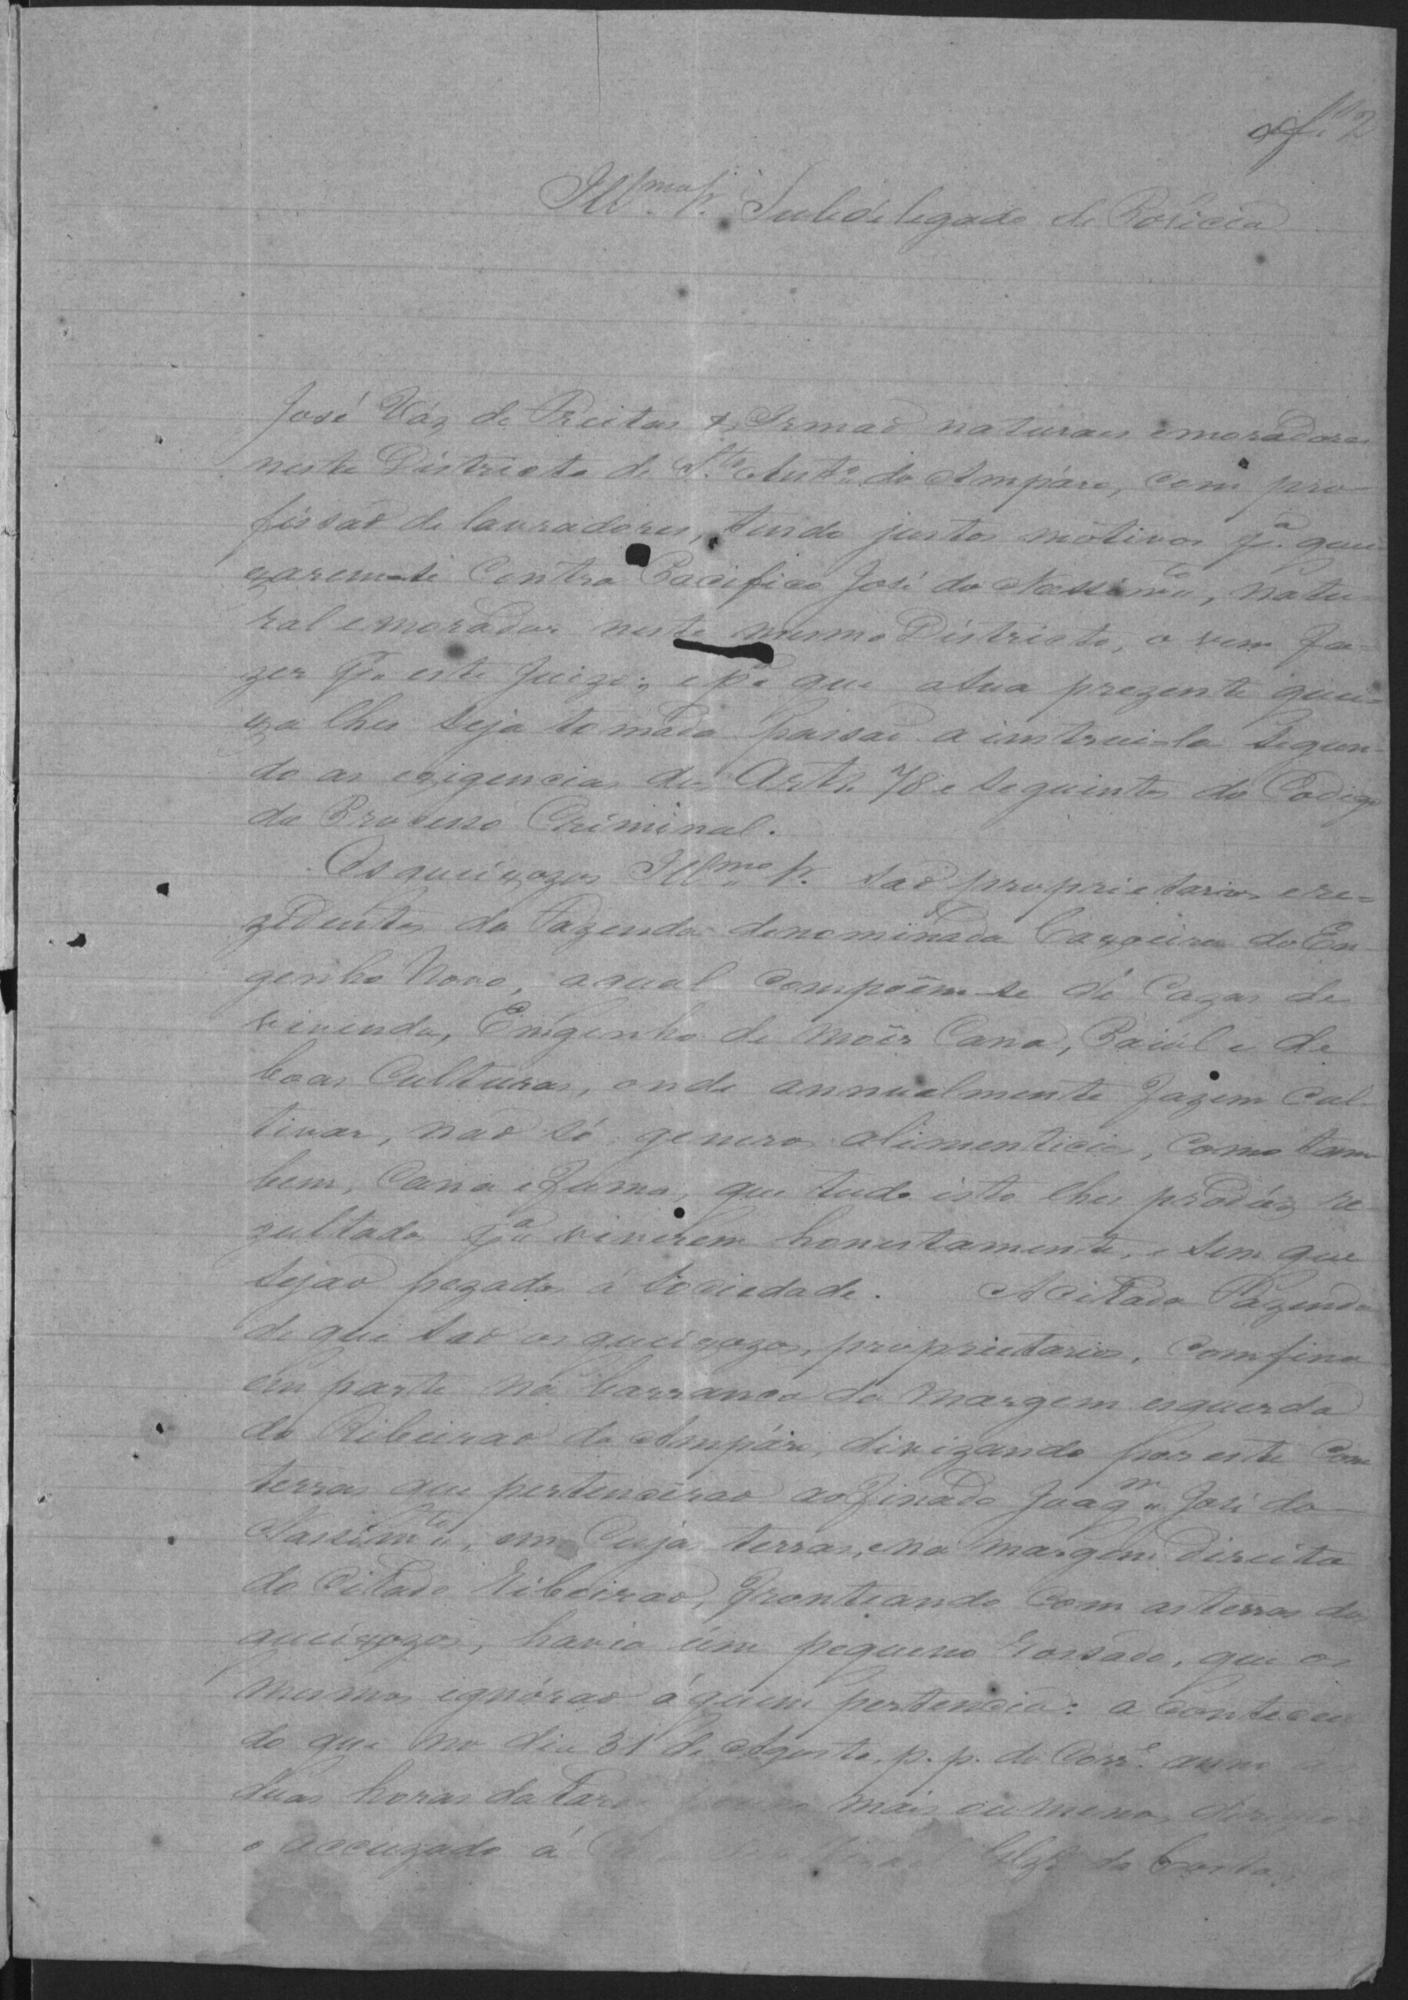 fs 2
Ill.mo Sr. Subdelegado de Policia
José Váz de Freitas & Irmaõ naturaes emoradores
neste Districto de S.to Ant.o do Ampáro, com pro-
fissaõ de lavradores, tendo justos motivos p.a quei-
xarem-se contra Pacifico José do Nassim.to, natu-
ral emorador neste mesmo Districto, o vem fa-
zer p.a este Juizo; e p.a que a sua prezente quei-
xa lhes seja tomada passaõ a instrui-la segun-
do as exigencias do Art.o 78 e seguintes do Codigo
do Processo Criminal.
Os queixozos Ill.mo Sr. saõ proprietarios ere-
zidentes da Fazenda denominada Caxoeira do En-
genho Novo, aqual compoem-se de Cazas de
vivenda, Engenho de moêr Cana, Paiol e de
boas Culturas, onde annualmente fazem cul-
tivar, naõ só generos alimenticios, como tam
bem, Cana efumo, que tudo isto lhes prodúz re-
zultado p.a viverem honestamente, e sem que
sejaõ pezados á Sociedade. A citada Fazenda
de que saõ os queixozos, proprietarios, comfina
em parte no barranco da margem esquerda
do Ribeiraõ do Ampáro, divizando por este com
terras que pertenceraõ aofinado Joaq.m José do
Nassim.to, em cujas terras, ena margem direita
do citado Ribeiraõ, fronteando com as terras dos
queixozos, havia um pequeno Rossado, que os
mesmos ignóraõ áquem pertencia: acontecen
do que no dia 31 de Agosto, p. p. do Corr.e anno as
duas horas da tarde pouco mais oumenos, dirigio
o accuzado á da Costa,